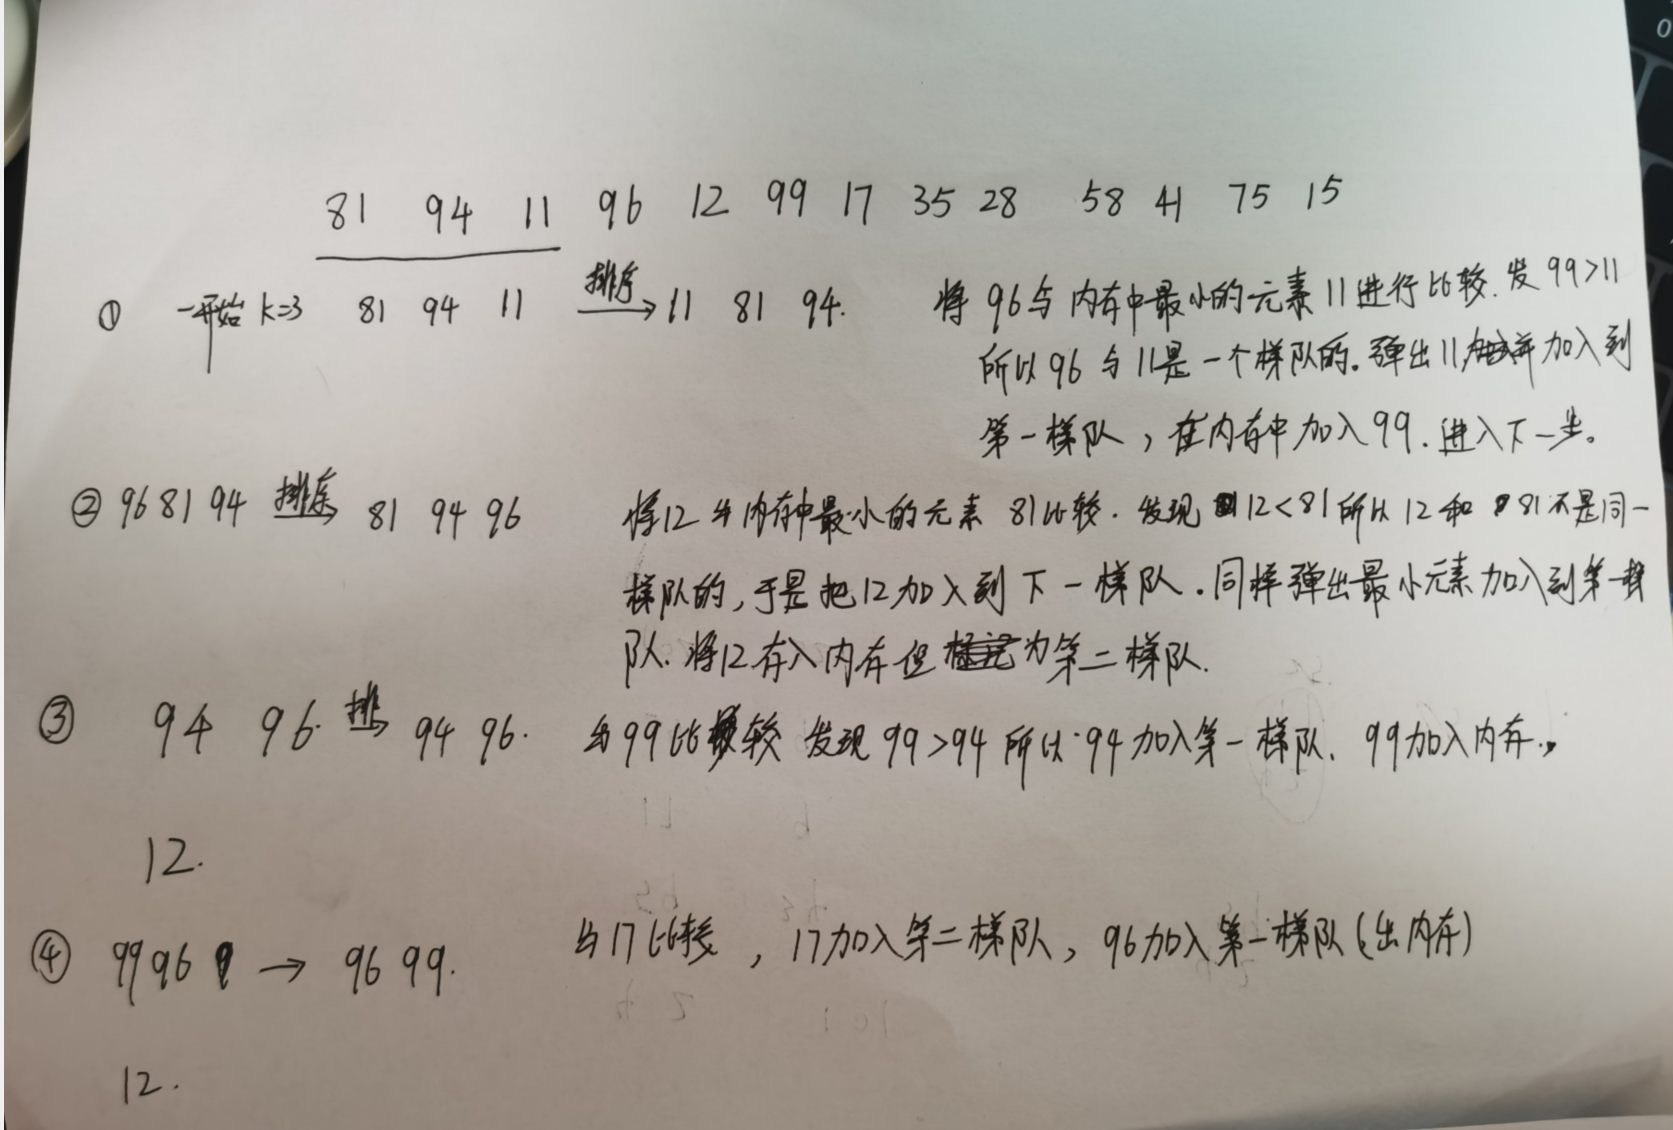 81 94 11 96 12 99 17 35 28 58 41 75 15
① 一开始 k=3 81 94 11 排序 11 81 94. 将 96 与 内存中最小的元素 11 进行比较. 发 99>11
所以 96 与 11是一个梯队的。弹出 11 并加入到
第一梯队，在内存中加入 99. 进入下一步。
② 96 81 94 排序 81 94 96 将12 与内存中最小的元素 81比较. 发现 12<81 所以 12 和 81 不是同一
梯队的，于是把12加入到下一梯队. 同样弹出最小元素加入到第一梯
队. 将12存入内存但 标记 为第二梯队.
③ 94 96. 排 94 96. 与99比较 发现 99>94 所以 94 加入第一梯队. 99加入内存.
12.
④ 99 96 → 96 99. 与17比较，17加入第二梯队，96加入第一梯队(出内存)
12.